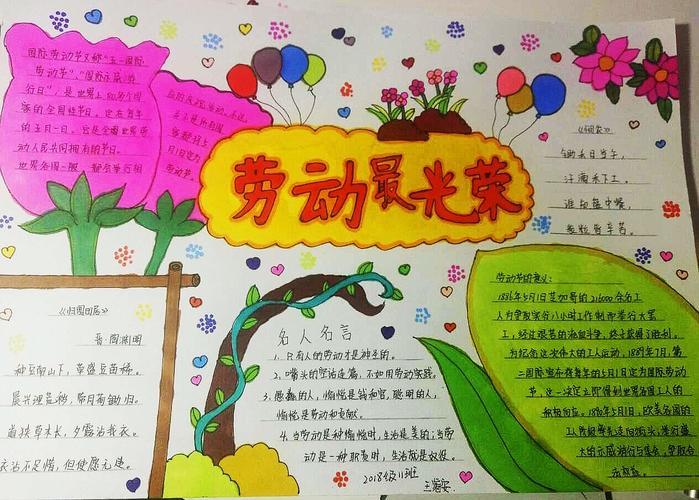 劳动最光荣
国际劳动节又称"五一国际
劳动节","国际示威游
行日",是世界上80多个国
家的全国性节日。定在每年
的五月一日。它是全世界劳
动人民共同拥有的节日。
劳动节。
《悯农》
锄禾日当午,
汗滴禾下土。
谁知盘中餐,
粒粒皆辛苦。
《归园田居》
晋·陶渊明
种豆南山下,草盛豆苗稀。
晨兴理荒秽,带月荷锄归。
道狭草木长,夕露沾我衣。
衣沾不足惜,但使愿无违
名人名言
1. 只有人的劳动才是神圣的。
2、嘴头的空话连篇,不如用劳动实践。
3、愚蠢的人,惦记是钱和官,聪明的人,
惦记是劳动和贡献。
4. 当劳动是种愉悦时,生活是美的;当劳
动是一种职责时,生活就是奴役。
2018级11班
劳动节的意义:
1886年5月1日芝加哥的216000余名工
人为争取实行八小时工作制而举行大罢
工,经过艰苦的流血斗争,终于获得了胜利。
为纪念这次伟大的工人运动,1889年7月,第
二国际宣布将每年的5月1日定为国际劳动
节,这一决定立即得到世界各国工人的
积极响应。1890年5月1日,欧美各国的
工人阶级率先走向街头,举行盛
大的示威游行与集会,争取合
法权益。